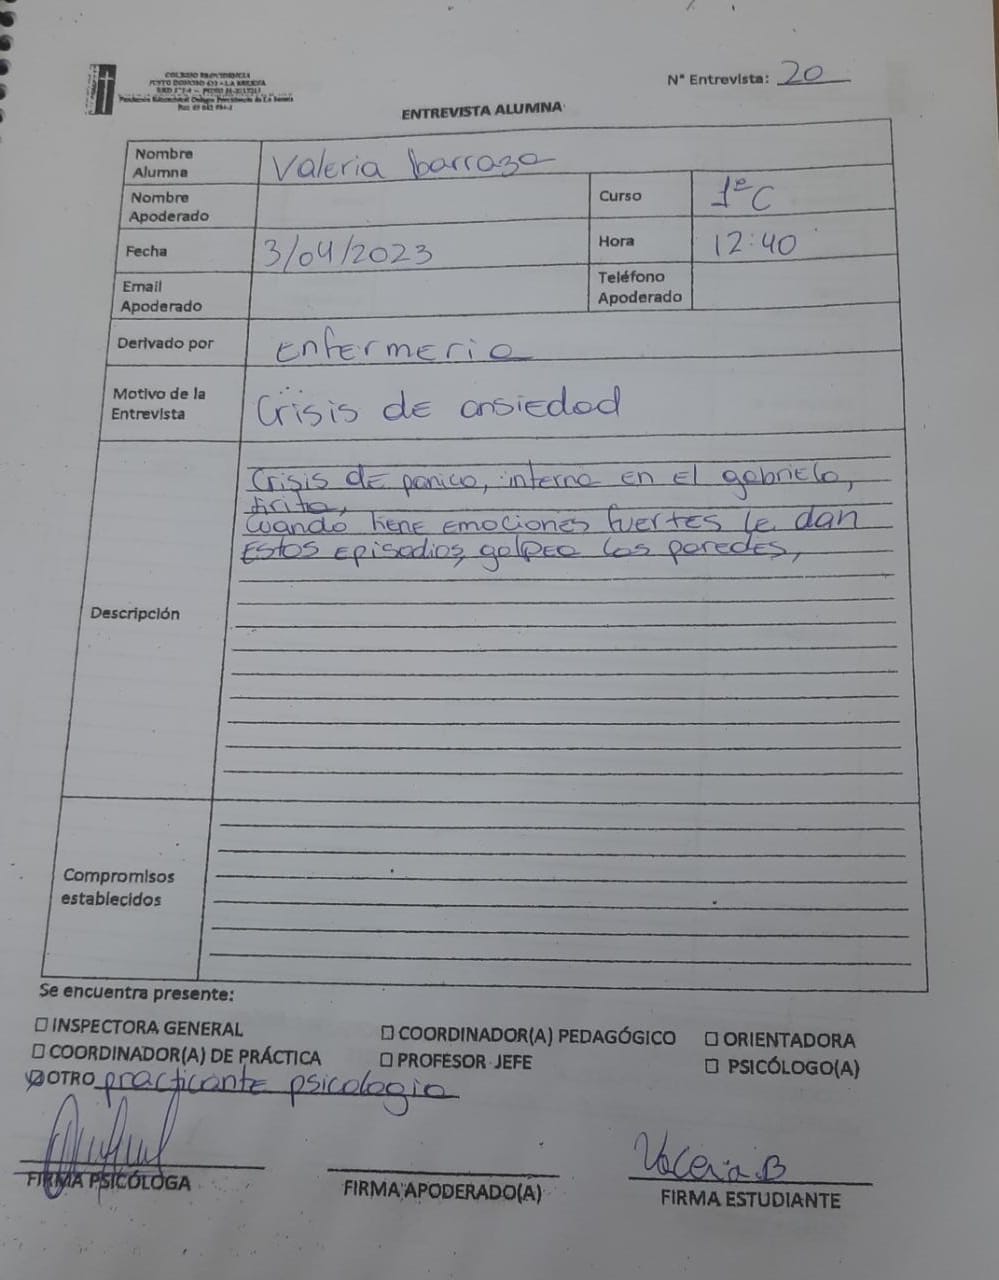 COLEGIO PROVIDENCIA
JUSTO DONOSO 420 - LA SERENA
Fundación Educacional Colegio Providencia de La Serena
N° Entrevista: 20
ENTREVISTA ALUMNA
Nombre Alumna Valeria Ibarraza
Nombre Apoderado Curso 1°C
Fecha 3/04/2023 Hora 12:40
Email Apoderado Teléfono Apoderado
Derivado por Enfermeria
Motivo de la Entrevista Crisis de ansiedad
Descripción
Crisis de panico, interna en el gabriela,
Cuando tiene emociones fuertes le dan
Estos Episodios, golpea las paredes,
Compromisos establecidos
Se encuentra presente:
☐ INSPECTORA GENERAL ☐ COORDINADOR(A) PEDAGÓGICO ☐ ORIENTADORA
☐ COORDINADOR(A) DE PRÁCTICA ☐ PROFESOR JEFE ☐ PSICÓLOGO(A)
☑ OTRO practicante psicologia
Valeria B
FIRMA PSICÓLOGA FIRMA APODERADO(A) FIRMA ESTUDIANTE